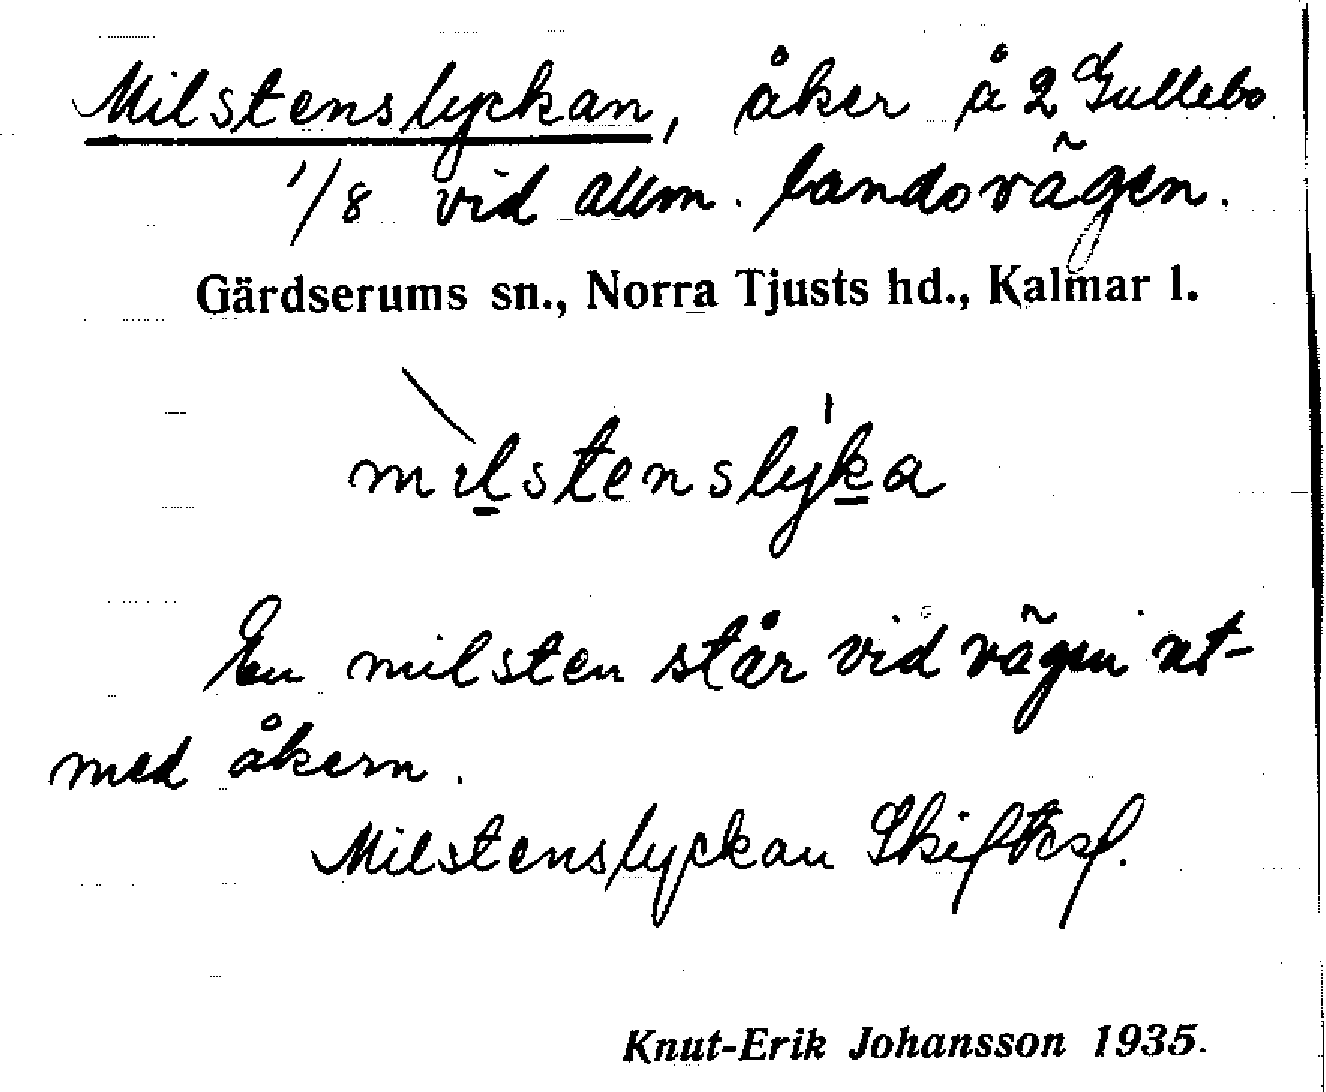 Milstenslyckan, åker å 2 Gullebo
1/8 vid allm. landsvägen.
Gärdserums sn., Norra Tjusts hd., Kalmar l.
milstenslyka
En milsten står vid vägen ut-
med åkern.
Milstenslyckan Skifteskl.
Knut-Erik Johansson 1935.